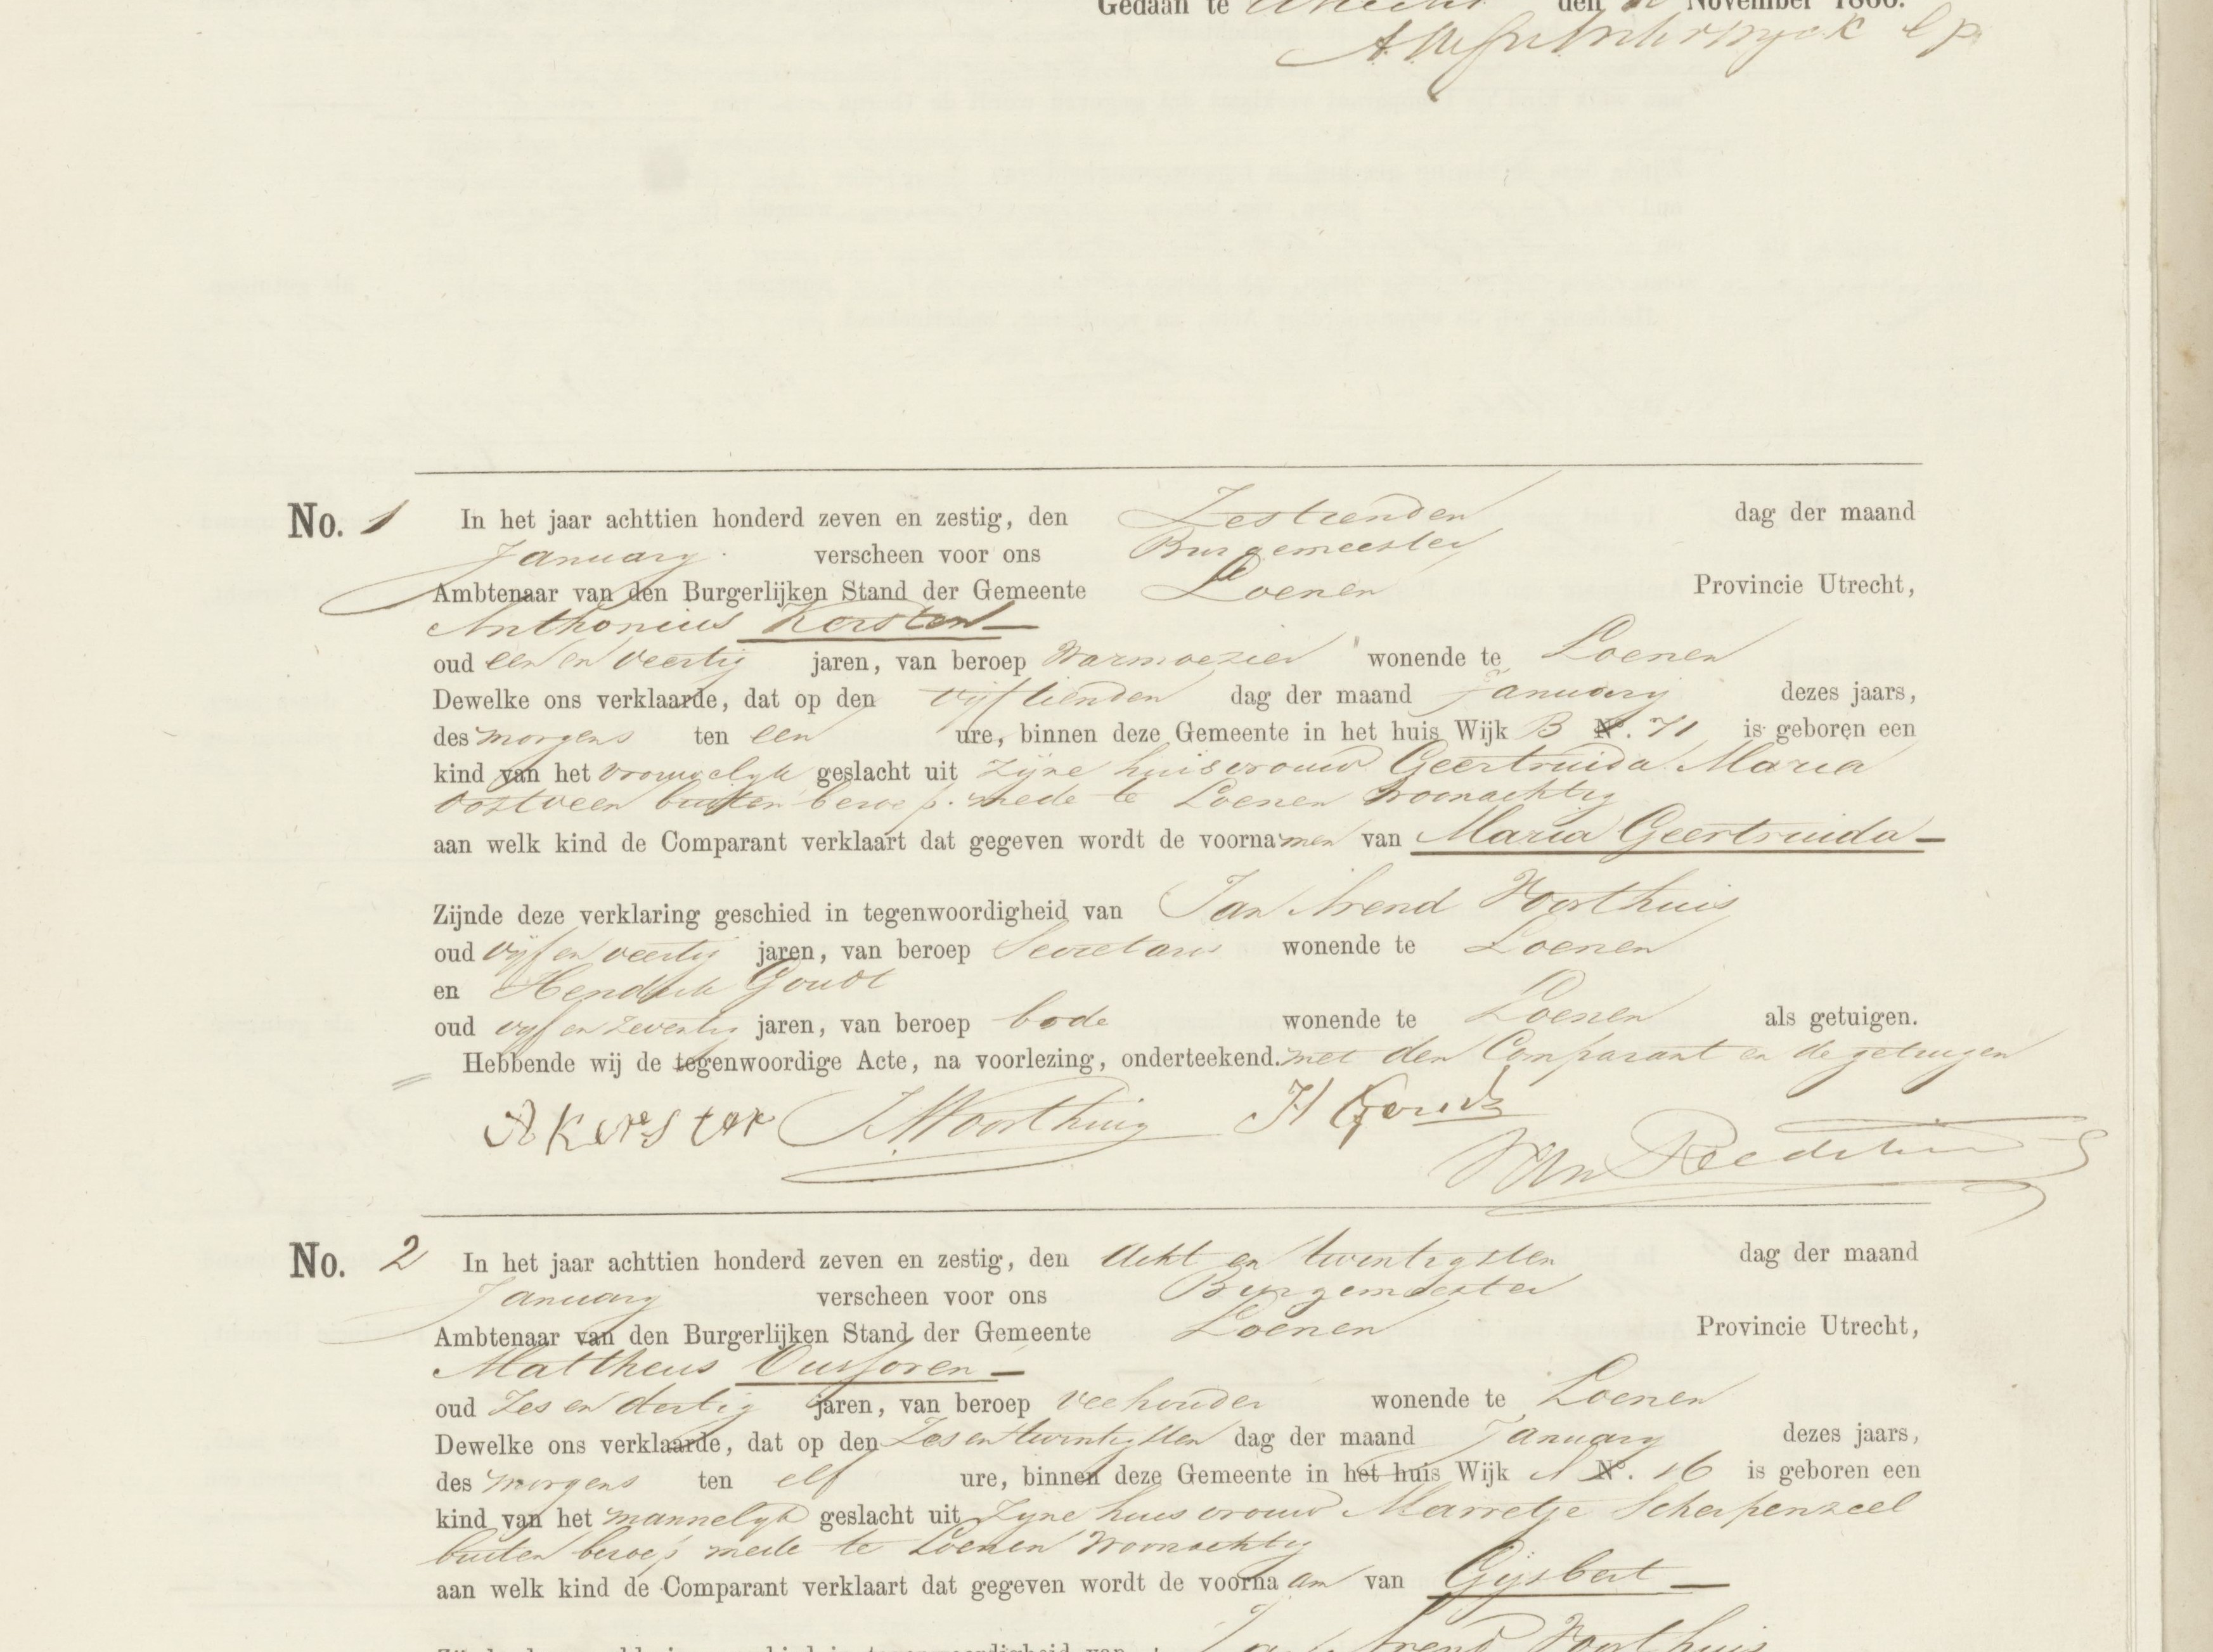 Gedaan te Utrecht den November 1866.
No. 1 In het jaar achttien honderd zeven en zestig, den Zestienden dag der maand
January verscheen voor ons Burgemeester
Ambtenaar van den Burgerlijken Stand der Gemeente Loenen Provincie Utrecht,
Anthonius Kersten
oud een en veertig jaren, van beroep Warmoezier wonende te Loenen
Dewelke ons verklaarde, dat op den vijftienden dag der maand January dezes jaars,
des morgens ten een ure, binnen deze Gemeente in het huis Wijk B No. 71 is geboren een
kind van het vrouwelyk geslacht uit zijne huisvrouw Geertruida Maria
Oostveen buiten beroep mede te Loenen woonachtig
aan welk kind de Comparant verklaart dat gegeven wordt de voornamen van Maria Geertruida
Zijnde deze verklaring geschied in tegenwoordigheid van Jan Arend Voorthuis
oud vijf en veertig jaren, van beroep Secretaris wonende te Loenen
en Hendrik Goudt
oud vyf en zeventig jaren, van beroep bode wonende te Loenen als getuigen.
Hebbende wij de tegenwoordige Acte, na voorlezing, onderteekend. met den Comparant en de getuigen
A Kersten J.A Voorthuis H Goudt
No. 2 In het jaar achttien honderd zeven en zestig, den Acht en twintigsten dag der maand
January verscheen voor ons Burgemeester
Ambtenaar van den Burgerlijken Stand der Gemeente Loenen Provincie Utrecht,
Mattheus
oud Zes en dertig jaren, van beroep veehouder wonende te Loenen
Dewelke ons verklaarde, dat op den Zes en twintigsten dag der maand January dezes jaars,
des morgens ten elf ure, binnen deze Gemeente in het huis Wijk A No. 16 is geboren een
kind van het mannelyk geslacht uit Zyne huisvrouw Marretje Scherpenzeel
buiten beroep mede te Loenen woonachtig
aan welk kind de Comparant verklaart dat gegeven wordt de voornaam van Gijsbert
Zijnde deze verklaring geschied in tegenwoordigheid van Jan Arend Voorthuis